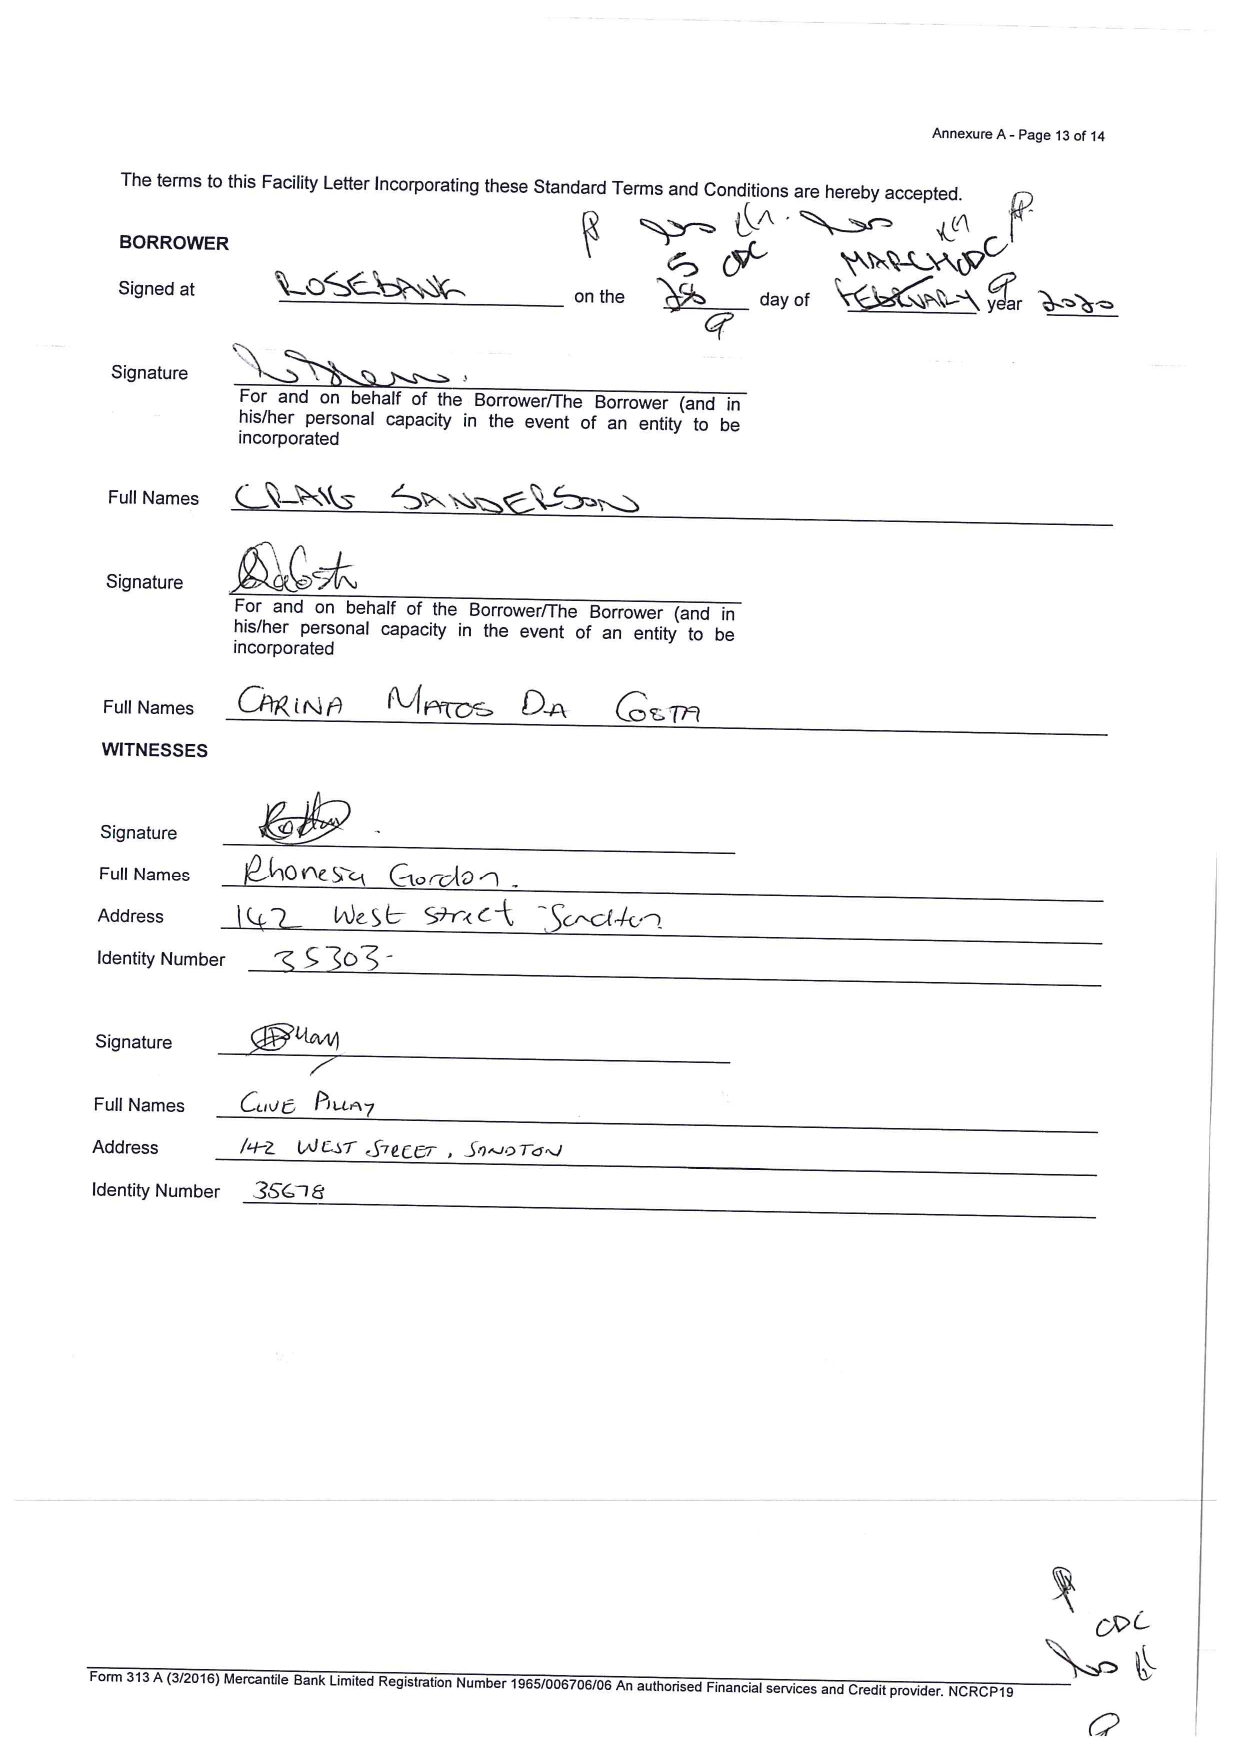 Annexure A - Page 13 of 14
The terms to this Facility Letter Incorporating these Standard Terms and Conditions are hereby accepted.
BORROWER
5 CDC MARCH CDC
Signed at ROSEBANK on the 28 day of FEBRUARY year 2020
Signature
For and on behalf of the Borrower/The Borrower (and in
his/her personal capacity in the event of an entity to be
incorporated
Full Names CRAIG SANDERSON
Signature
For and on behalf of the Borrower/The Borrower (and in
his/her personal capacity in the event of an entity to be
incorporated
Full Names CARINA MATOS DA COSTA
WITNESSES
Signature
Full Names Rhonesia Gordon.
Address 142 West street Sandton
Identity Number 35303-
Signature
Full Names CLIVE PILLAY
Address 142 WEST STREET, SANDTON
Identity Number 35678
CDC
Form 313 A (3/2016) Mercantile Bank Limited Registration Number 1965/006706/06 An authorised Financial services and Credit provider. NCRCP19